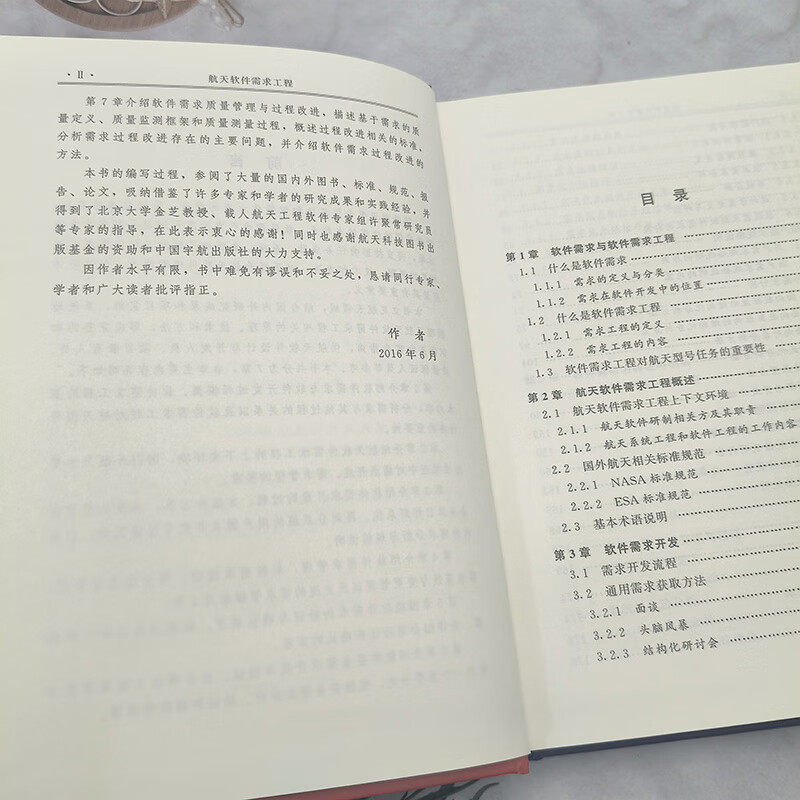 · II ·
航天软件需求工程
第7章介绍软件需求质量管理与过程改进，描述基于需求的质
量定义、质量监测框架和质量测量过程，概述过程改进相关的标准、
分析需求过程改进存在的主要问题，并介绍软件需求过程改进的
方法。
本书的编写过程，参阅了大量的国内外图书、标准、规范、报
告、论文，吸纳借鉴了许多专家和学者的研究成果和实践经验，并
得到了北京大学金芝教授、载人航天工程软件专家组许聚常研究员
等专家的指导，在此表示衷心的感谢！同时也感谢航天科技图书出
版基金的资助和中国宇航出版社的大力支持。
因作者水平有限，书中难免有谬误和不妥之处，恳请同行专家、
学者和广大读者批评指正。
作 者
2016年6月
目 录
第1章 软件需求与软件需求工程
1.1 什么是软件需求
1.1.1 需求的定义与分类
1.1.2 需求在软件开发中的位置
1.2 什么是软件需求工程
1.2.1 需求工程的定义
1.2.2 需求工程的内容
1.3 软件需求工程对航天型号任务的重要性
第2章 航天软件需求工程概述
2.1 航天软件需求工程上下文环境
2.1.1 航天软件研制相关方及其职责
2.1.2 航天系统工程和软件工程的工作内容
2.2 国外航天相关标准规范
2.2.1 NASA标准规范
2.2.2 ESA标准规范
2.3 基本术语说明
第3章 软件需求开发
3.1 需求开发流程
3.2 通用需求获取方法
3.2.1 面谈
3.2.2 头脑风暴
3.2.3 结构化研讨会